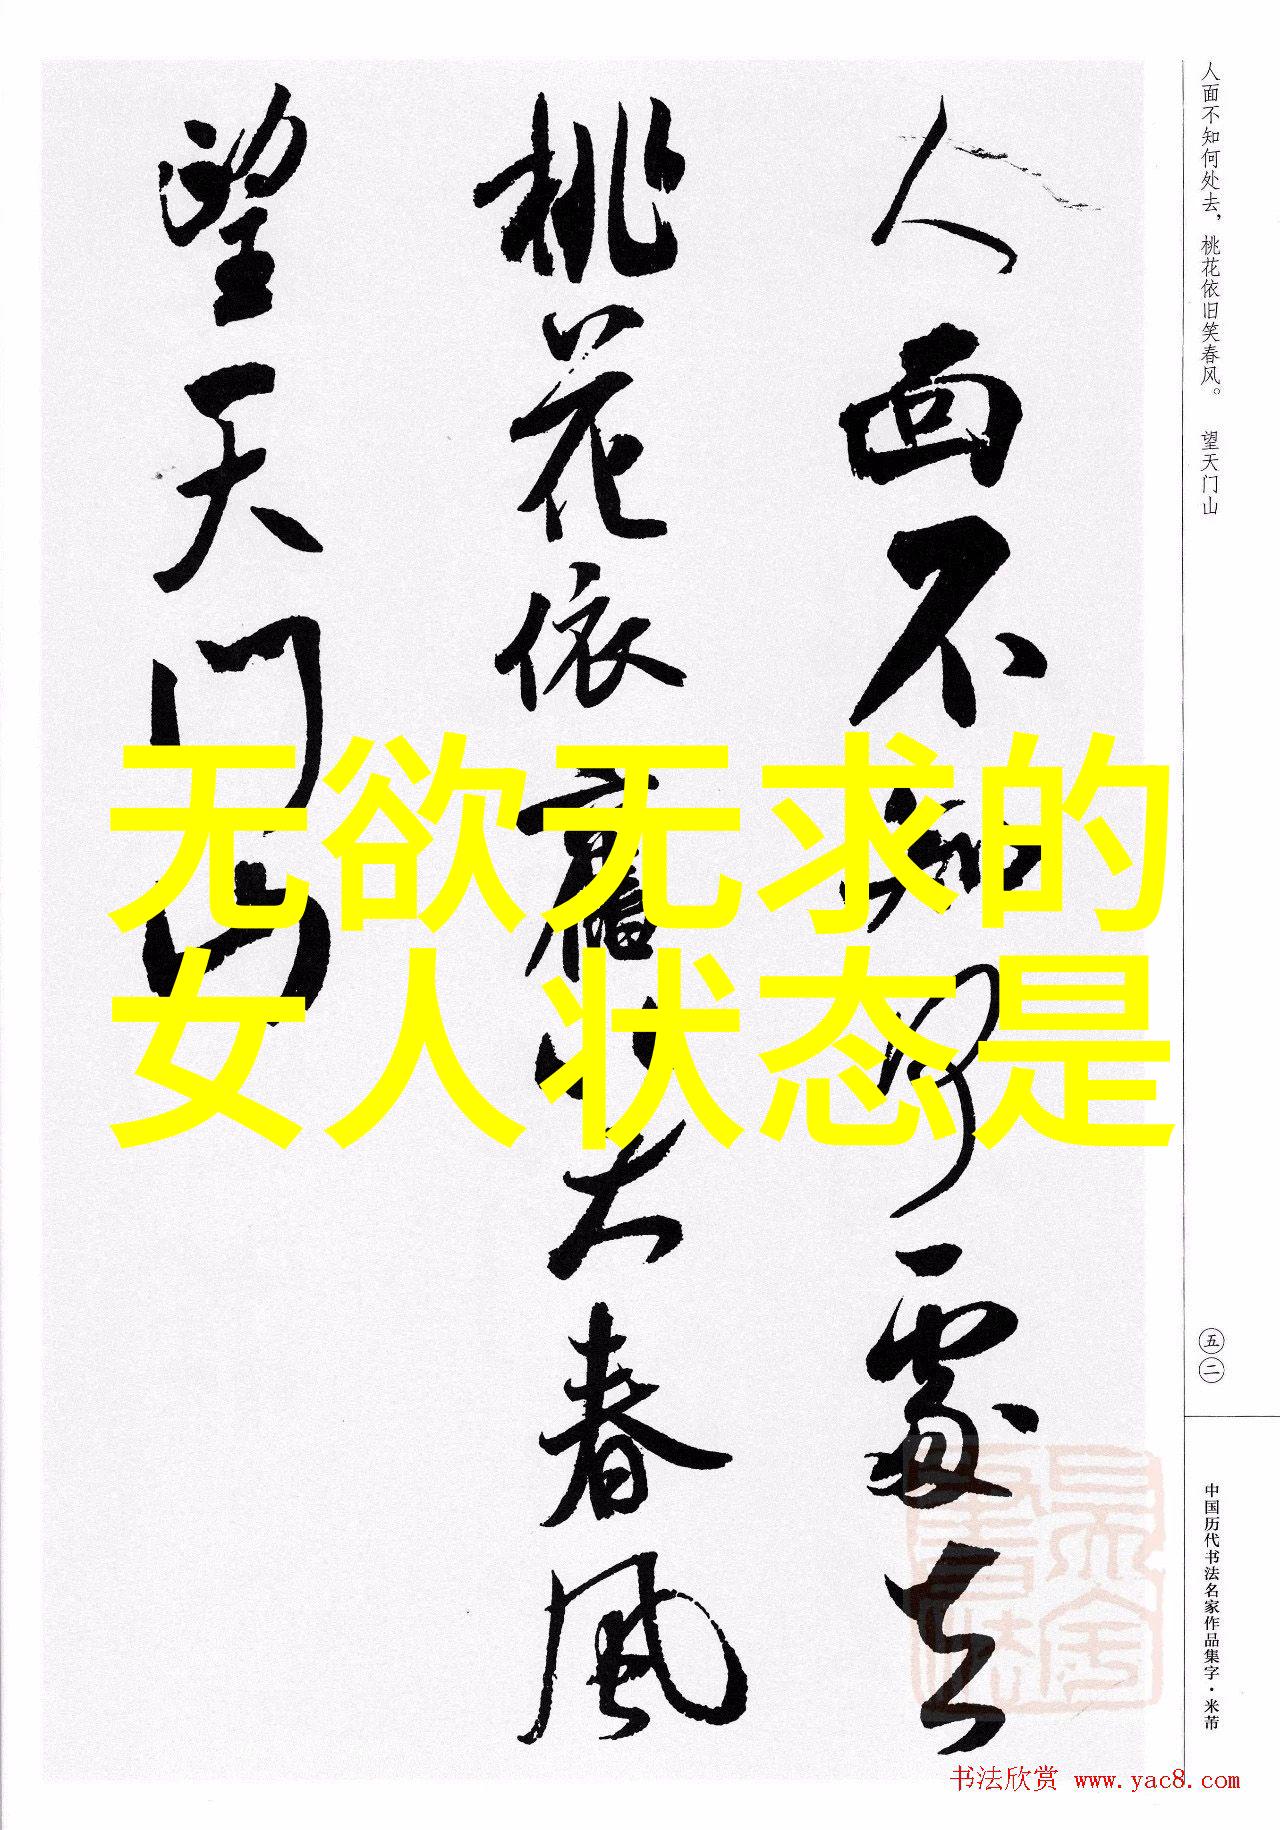 人面不知何處去
桃花依舊笑春风
望天门山
无欲无求的
女人状态是
人面不知何处去，桃花依旧笑春风。 望天门山
五二
中国历代书法名家作品集字·米芾
书法欣赏 www.yac8.com